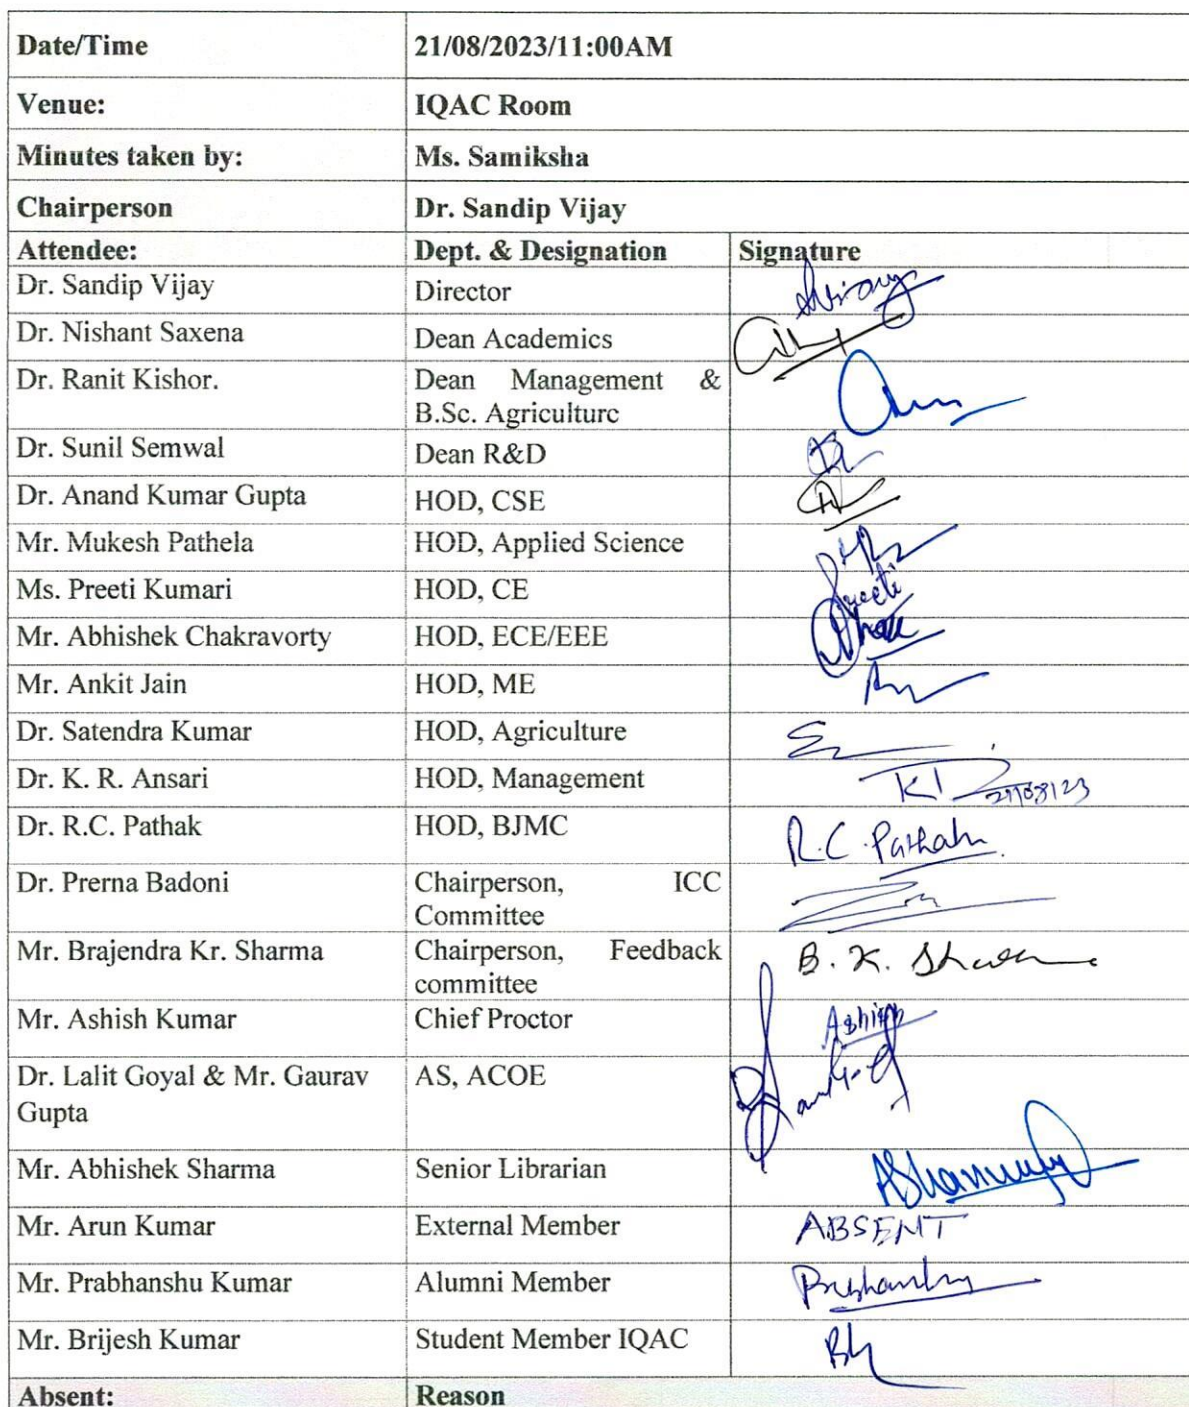 Date/Time 21/08/2023/11:00AM
Venue: IQAC Room
Minutes taken by: Ms. Samiksha
Chairperson Dr. Sandip Vijay
Attendee: Dept. & Designation Signature
Dr. Sandip Vijay Director
Dr. Nishant Saxena Dean Academics
Dr. Ranit Kishor. Dean Management &
B.Sc. Agriculture
Dr. Sunil Semwal Dean R&D
Dr. Anand Kumar Gupta HOD, CSE
Mr. Mukesh Pathela HOD, Applied Science
Ms. Preeti Kumari HOD, CE Preeti
Mr. Abhishek Chakravorty HOD, ECE/EEE
Mr. Ankit Jain HOD, ME
Dr. Satendra Kumar HOD, Agriculture
Dr. K. R. Ansari HOD, Management 21/08/23
Dr. R.C. Pathak HOD, BJMC R.C. Pathak
Dr. Prerna Badoni Chairperson, ICC
Committee
Mr. Brajendra Kr. Sharma Chairperson, Feedback B. K. Sharma
committee
Mr. Ashish Kumar Chief Proctor Ashish
Dr. Lalit Goyal & Mr. Gaurav AS, ACOE
Gupta
Mr. Abhishek Sharma Senior Librarian
Mr. Arun Kumar External Member ABSENT
Mr. Prabhanshu Kumar Alumni Member
Mr. Brijesh Kumar Student Member IQAC
Absent: Reason